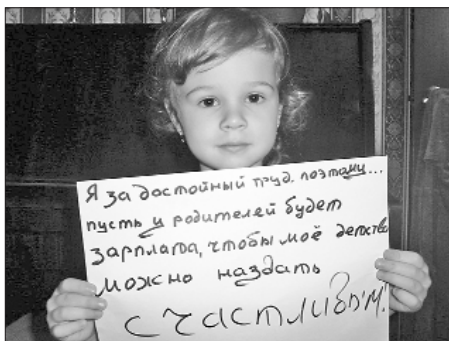 Я за достойный труд. поэтому...
пусть у родителей будет
зарплата, чтобы моё детство
можно назвать
счастливым!